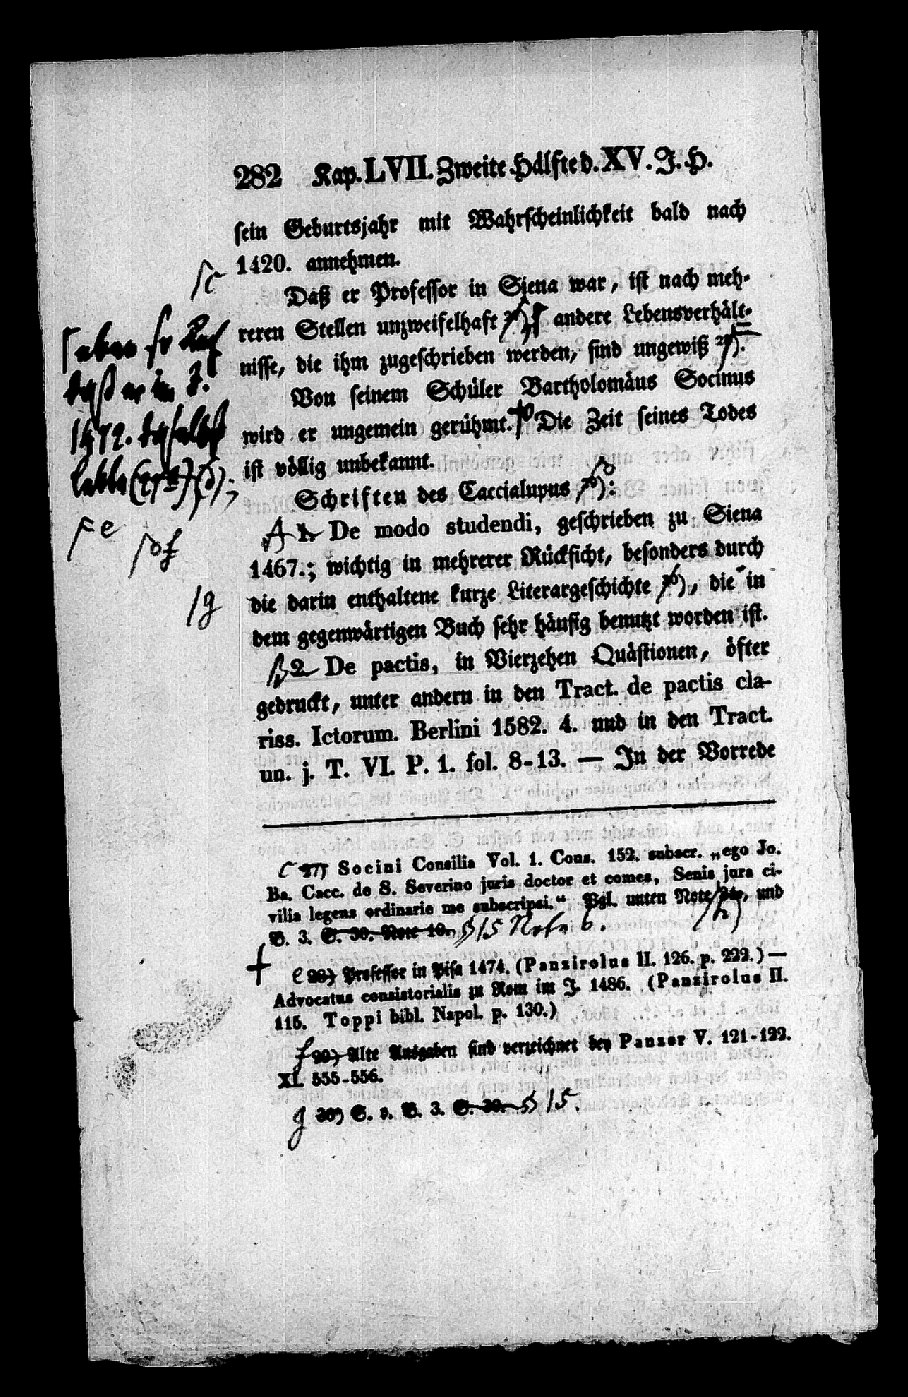 282 Kap. LVII. Zweite Hälfte d. XV. J. H.
sein Geburtsjahr mit Wahrscheinlichkeit bald nach
1420. annehmen.
Daß er Professor in Siena war, ist nach meh-
reren Stellen unzweifelhaft andere Lebensverhält-
nisse, die ihm zugeschrieben werden, sind ungewiß
Von seinem Schüler Bartholomäus Socinus
wird er ungemein gerühmt. Die Zeit seines Todes
ist völlig unbekannt.
Schriften des Caccialupus
A 1. De modo studendi, geschrieben zu Siena
1467.; wichtig in mehrerer Rücksicht, besonders durch
die darin enthaltene kurze Literargeschichte , die in
dem gegenwärtigen Buch sehr häufig benutzt worden ist.
2. De pactis, in Vierzehen Quästionen, öfter
gedruckt, unter andern in den Tract. de pactis cla-
riss. Ictorum. Berlini 1582. 4. und in den Tract.
un. j. T. VI. P. 1. fol. 8-13. — In der Vorrede
c 27) Socini Consilia Vol. 1. Cons. 152. subscr. „ego Jo.
Ba. Cacc. de S. Severino juris doctor et comes, Senis jura ci-
vilia legens ordinarie me subscripsi.“ Vgl. unten Note , und
B. 3. S. 30. Note 10. § 15 Note 6.
e 28) Professor in Pisa 1474. (Panzirolus II. 126. p. 222.) —
Advocatus consistorialis zu Rom im J. 1486. (Panzirolus II.
115. Toppi bibl. Napol. p. 130.)
f 29) Alte Ausgaben sind verzeichnet bey Panzer V. 121-122.
XI. 555-556.
g 30) S. o. B. 3. S. 30. § 15
c
daß er im J.
1472. daselbst
lebte
e
f
g